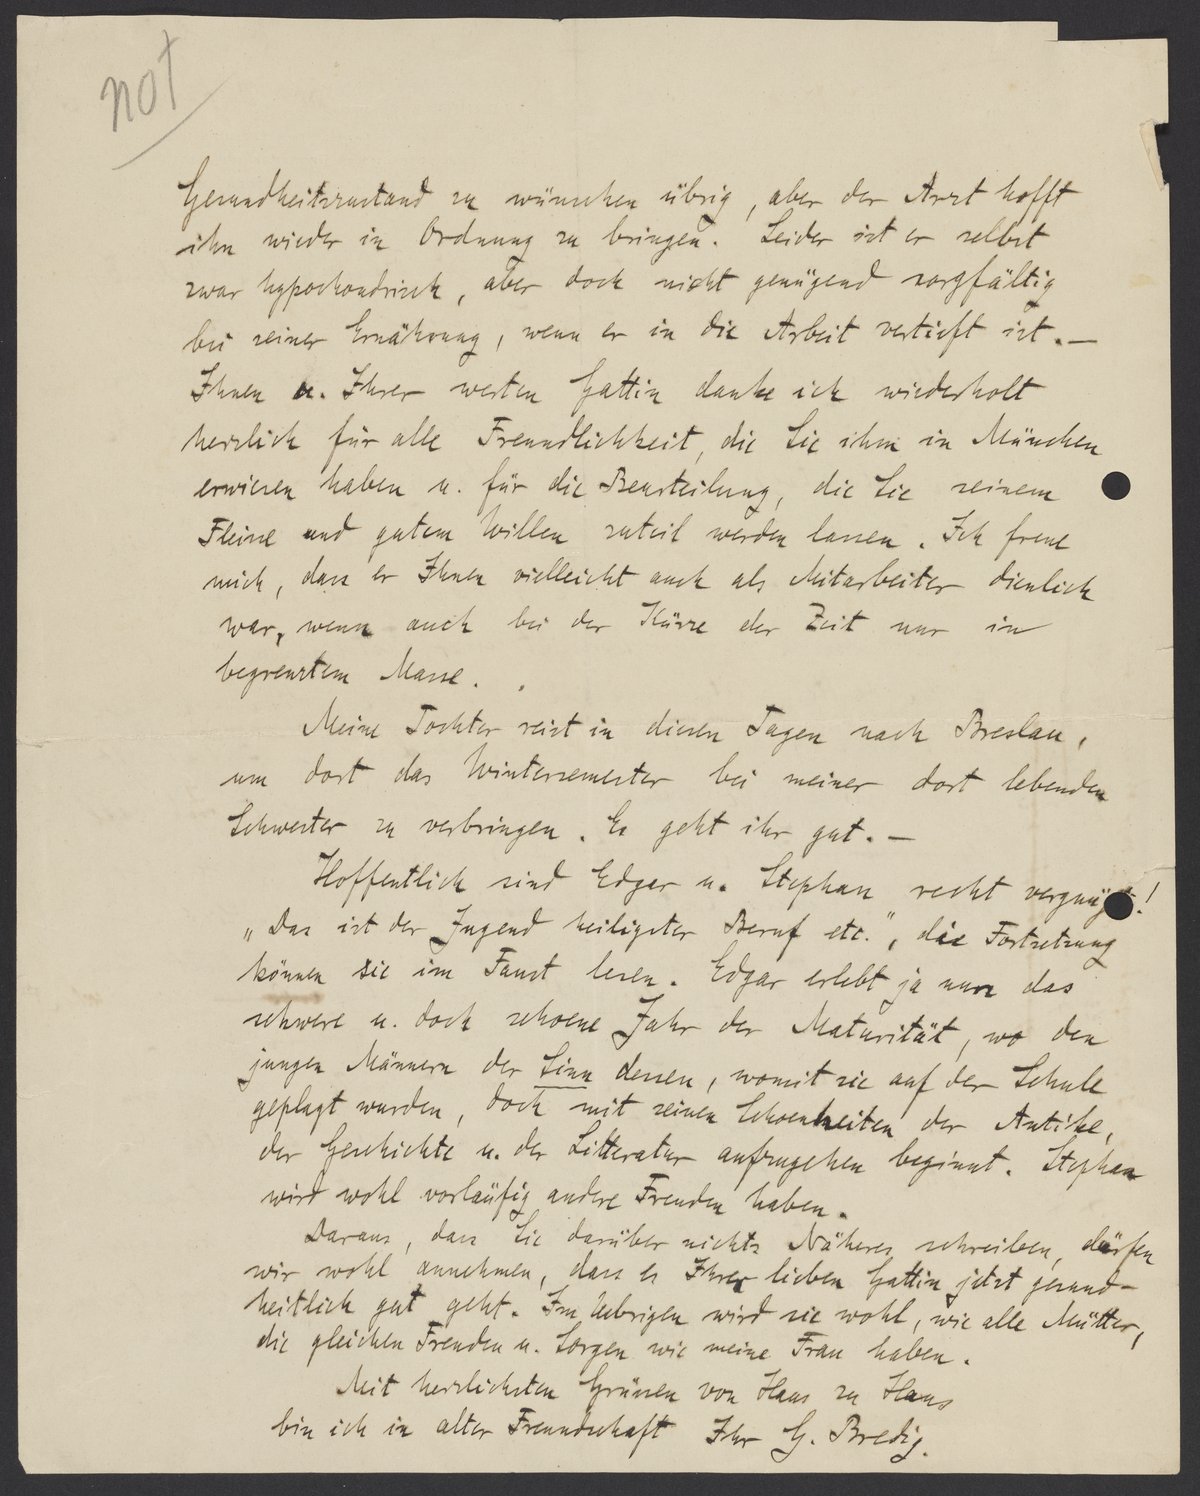 not
Gesundheitszustand zu wünschen übrig, aber der Arzt hofft
ihn wieder in Ordnung zu bringen. Leider ist er selbst
zwar hypochondrisch, aber doch nicht genügend sorgfältig
bei seiner Ernährung, wenn er in die Arbeit vertieft ist.—
Ihnen u. Ihrer werten Gattin danke ich wiederholt
herzlich für alle Freundlichkeit, die Sie ihm in München
erwiesen haben u. für die Beurteilung, die Sie seinem
Fleisse und gutem Willen zuteil werden lassen. Ich freue
mich, dass er Ihnen vielleicht auch als Mitarbeiter dienlich
war, wenn auch bei der Kürze der Zeit nur in
begrenztem Masse.
Meine Tochter reist in diesen Tagen nach Breslau,
um dort das Wintersemester bei meiner dort lebenden
Schwester zu verbringen. Es geht ihr gut.—
Hoffentlich sind Edgar u. Stephan recht vergnügt!
„Das ist der Jugend heiligster Beruf etc.", die Fortsetzung
können sie im Faust lesen. Edgar erlebt ja nun das
schwere u. doch schoene Jahr der Maturität, wo den
jungen Männern der Sinn dessen, womit sie auf der Schule
geplagt wurden, doch mit seinen Schoenheiten der Antike,
der Geschichte u. der Litteratur aufzugehen beginnt. Stephan
wird wohl vorläufig andere Freuden haben.
Daraus, dass Sie darüber nichts Näheres schreiben, dürfen
wir wohl annehmen, dass es Ihrer lieben Gattin jetzt gesund-
heitlich gut geht. Im Uebrigen wird sie wohl, wie alle Mütter,
die gleichen Freuden u. Sorgen wie meine Frau haben.
Mit herzlichsten Grüssen von Haus zu Haus
bin ich in alter Freundschaft Ihr G. Bredig.